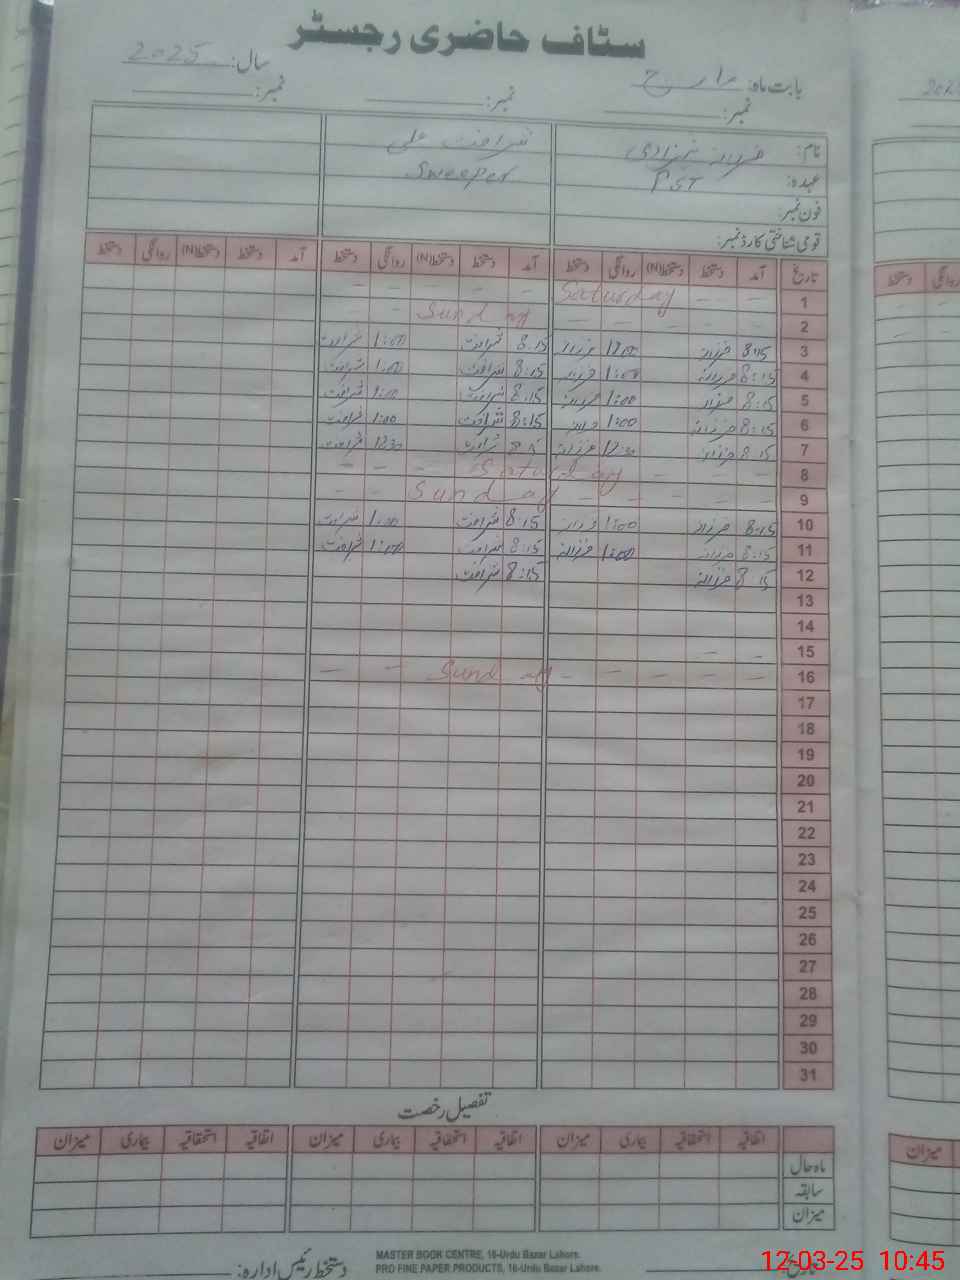 سٹاف حاضری رجسٹر
بابت ماہ: مارچ سال: 2025
نمبر: نمبر: نمبر:
نام: فرزانہ شہزادی شرافت علی
عہدہ: PST Sweeper
فون نمبر:
قومی شناختی کارڈ نمبر:
تاریخ آمد دستخط دستخط(N) روانگی دستخط آمد دستخط دستخط(N) روانگی دستخط آمد دستخط دستخط(N) روانگی دستخط
1 – – Saturday – – – – –
2 – – – – – Sunday – –
3 8:15 فرزانہ فرزانہ 8:15 شرافت 1:00 شرافت
4 8:15 فرزانہ 1:00 فرزانہ 8:15 شرافت 1:00 شرافت
5 8:15 فرزانہ 1:00 فرزانہ 8:15 شرافت 1:00 شرافت
6 8:15 فرزانہ 1:00 فرزانہ 8:15 شرافت 1:00 شرافت
7 8:15 فرزانہ 12:30 فرزانہ 8:15 شرافت 12:30 شرافت
8 – – – Saturday – – –
9 – – – – – Sunday – –
10 8:15 فرزانہ 1:00 فرزانہ 8:15 شرافت 1:00 شرافت
11 8:15 فرزانہ 1:00 فرزانہ 8:15 شرافت 1:00 شرافت
12 8:15 فرزانہ 8:15 شرافت
13
14
15 – –
16 – – – – – Sunday – –
17
18
19
20
21
22
23
24
25
26
27
28
29
30
31
تفصیل رخصت
اتفاقیہ استحقاقیہ بیماری میزان اتفاقیہ استحقاقیہ بیماری میزان اتفاقیہ استحقاقیہ بیماری میزان
ماہ حال
سابقہ
میزان
تاریخ دستخط رئیس ادارہ:
MASTER BOOK CENTRE, 16-Urdu Bazar Lahore.
PRO FINE PAPER PRODUCTS, 16-Urdu Bazar Lahore.
12-03-25 10:45
دستخط روانگی
میزان